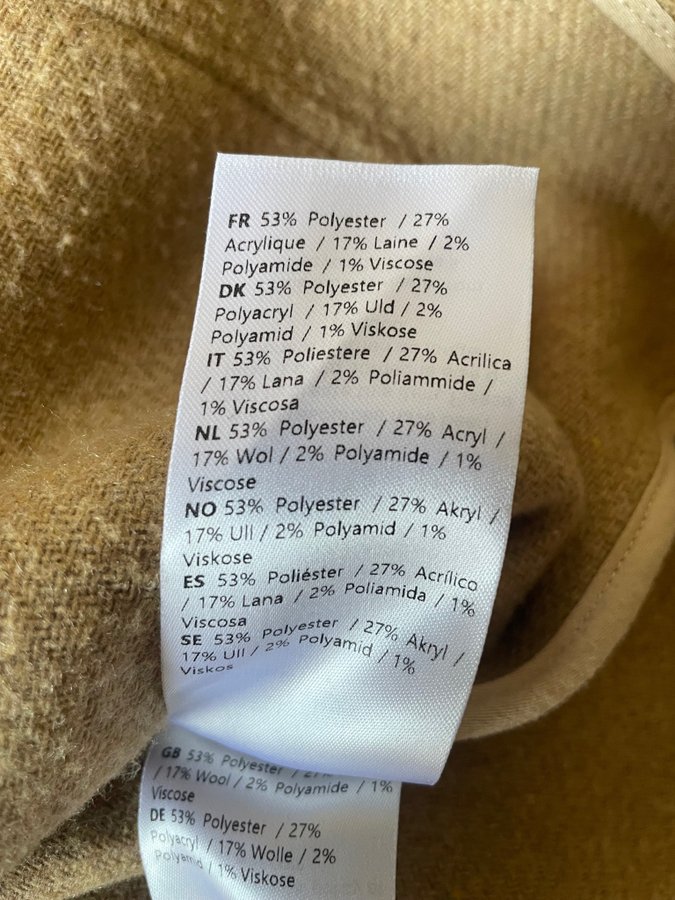 FR 53% Polyester / 27%
Acrylique / 17% Laine / 2%
Polyamide / 1% Viscose
DK 53% Polyester / 27%
Polyacryl / 17% Uld / 2%
Polyamid / 1% Viskose
IT 53% Poliestere / 27% Acrilica
/ 17% Lana / 2% Poliammide /
1% Viscosa
NL 53% Polyester / 27% Acryl /
17% Wol / 2% Polyamide / 1%
Viscose
NO 53% Polyester / 27% Akryl /
17% Ull / 2% Polyamid / 1%
Viskose
ES 53% Poliéster / 27% Acrílico
/ 17% Lana / 2% Poliamida / 1%
Viscosa
SE 53% Polyester / 27% Akryl /
17% Ull / 2% Polyamid / 1%
Viskos
GB 53% Polyester / 27%
/ 17% Wool / 2% Polyamide / 1%
Viscose
DE 53% Polyester / 27%
Polyacryl / 17% Wolle / 2%
Polyamid / 1% Viskose